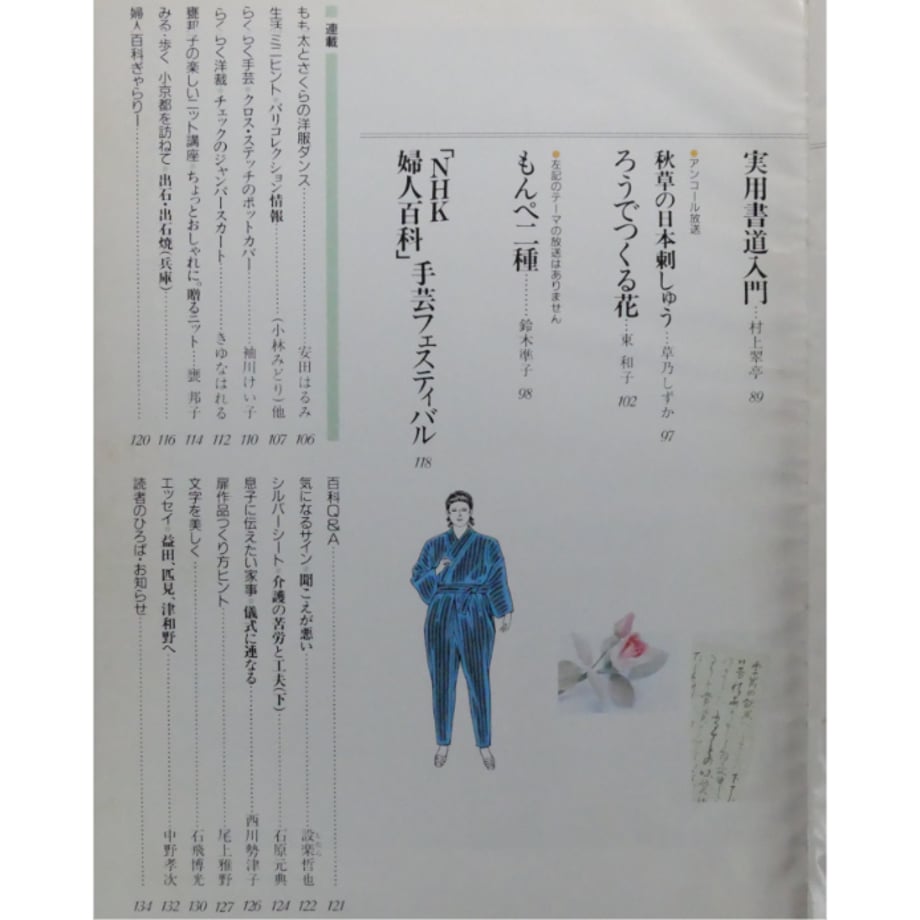 実用書道入門…村上翠亭 89
●アンコール放送
秋草の日本刺しゅう…草乃しずか 97
ろうでつくる花…東 和子 102
●左記のテーマの放送はありません
もんぺ二種………鈴木準子 98
「NHK
婦人百科」手芸フェスティバル 118
連載
もも太とさくらの洋服ダンス………安田はるみ 106
生活ミニヒント●パリコレクション情報………(小林みどり)他 107
らくらく手芸●クロス・ステッチのポットカバー………袖川けい子 110
らくらく洋裁●チェックのジャンパースカート………きゆなはれる 112
甕邦子の楽しいニット講座●ちょっとおしゃれに。贈るニット…甕 邦子 114
みる・歩く 小京都を訪ねて●出石・出石焼(兵庫)……… 116
婦人百科ぎゃらりー……… 120
百科Q&A……… 121
気になるサイン●聞こえが悪い………設楽哲也 122
したら
シルバーシート●介護の苦労と工夫(下)………石原元典 124
息子に伝えたい家事●儀式に連なる………西川勢津子 126
扉作品つくり方ヒント………尾上雅野 127
文字を美しく………石飛博光 130
エッセイ●益田、匹見、津和野へ………中野孝次 132
読者のひろば・お知らせ……… 134